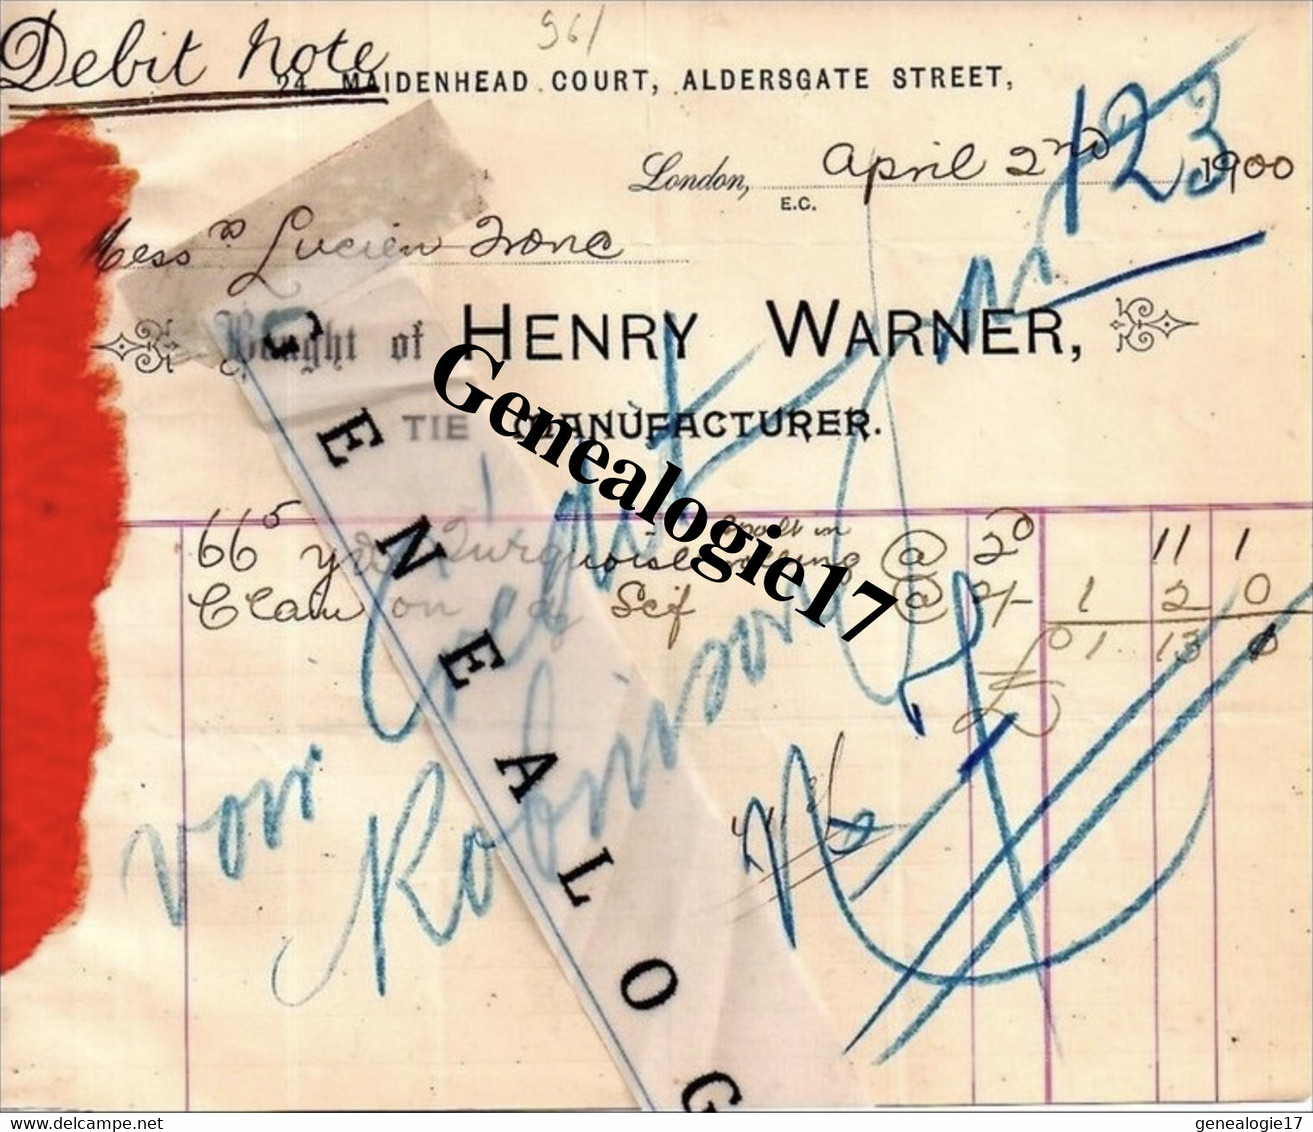 961
Debit Note
24, MAIDENHEAD COURT, ALDERSGATE STREET,
123
London, April 2nd 1900
E.C.
Messrs Lucien
Bought of HENRY WARNER,
TIE MANUFACTURER.
66⁵ yds Turquoise @ 2D 11 1
Claim on @ 2/- 1 2 0
£ 1 13
Credit
von Robinson
GENEALOG
Genealogie17
delcampe.net
genealogie17